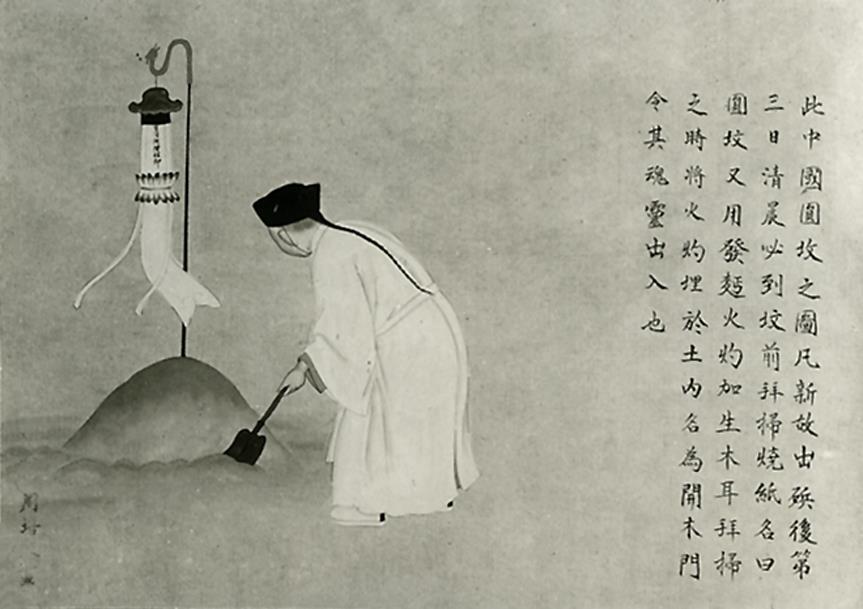 此中國圓坟之圖凡新故出殯後第
三日清晨必到坟前拜掃燒紙名曰
圓坟又用發麵火灼加生木耳拜掃
之時將火灼埋於土內名為開木門
令其魂靈出入也